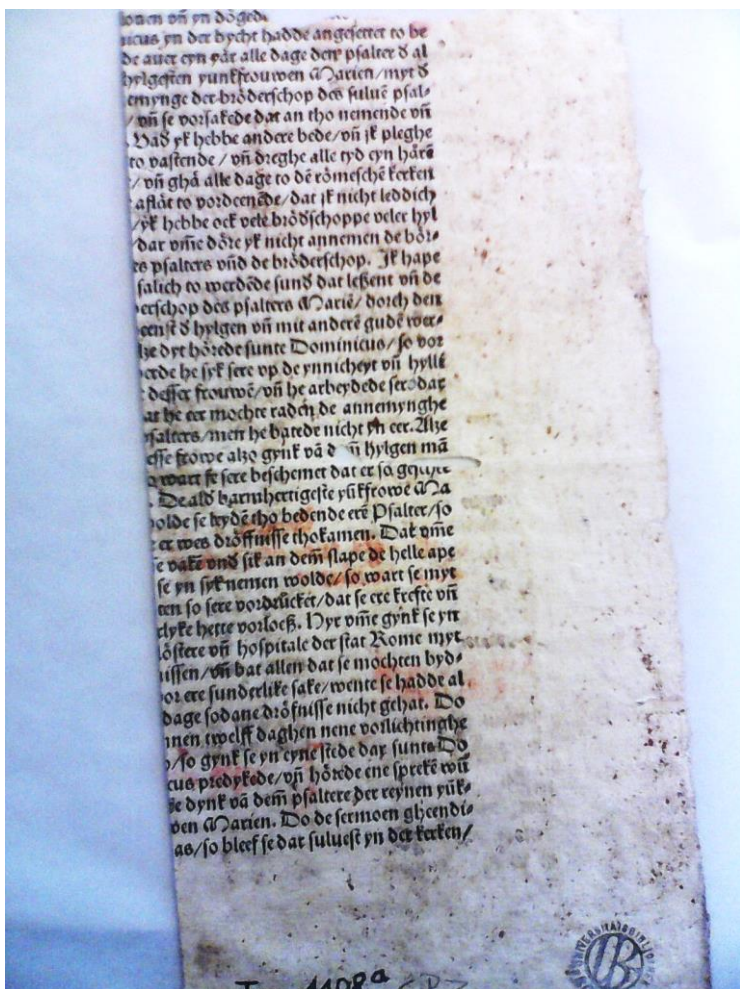 onen vñ yn dögedē
icus yn der bycht hadde angesettet to be
de auer eyn yår alle dage dem psalter d̄ al
hylgesten yunkfrouwen Marien/myt d̄
emynge der bröderschop des suluē psal-
/ vñ se vorsakede dat an tho nemende vñ
Vad yk hebbe andere bede/vñ jk pleghe
to vastende / vñ dreghe alle tyd eyn hårē
/ vñ ghå alle dage to dē römeschē kerken
aflåt to vordeenēde/dat jk nicht leddich
/yk hebbe ock vele brödschoppe veler hyl
/dar vm̄e döre yk nicht annemen de bör-
es psalters vñd de bröderschop. Jk hape
salich to werdēde sund̄ dat leßent vñ de
erschop des psalters Mariē/ dorch den
eenst d̄ hylgen vñ mit anderē gudē wer-
lze dyt hörede sunte Dominicus/ so vor
erde he syk sere vp de ynnicheyt vñ hyllē
desser frouwē/vñ he arbeydede sere dar
at he eer mochte raden de annemynghe
psalters/men he batede nicht yn eer. Alze
esse frowe alzo gynk vā d vñ hylgen mā
wart se sere beschemet dat er so
De ald̄ barmhertigeste yūkfrowē Ma
olde se leydē tho bedende erē Psalter/so
er wes dröffnisse thokamen. Dat vm̄e
e vakē vnd sik an dem̄ slape de helle ape
se yn syk nemen wolde/ so wart se myt
ten so sere vordrücket/dat se ere krefte vñ
rlyke hette vorloeß. Hyr vm̄e gynk se yn
löstere vñ hospitale der stat Rome myt
nissen/vñ bat allen dat se mochten byd-
vor ere sunderlike sake/wente se hadde al
dage sodane dröfnisse nicht gehat. Do
nnen twelff daghen nene vorlichtinghe
/so gynk se yn eyne stede dar sunte Do
cus predykede/vñ hörede ene sprekē wū
e dynk vā dem̄ psaltere der reynen yūk-
wen Marien. Do de sermoen gheendi-
as/so bleef se dar suluest yn der kerken/
1108ª
UNIVERSITÄTSBIBLIOTHEK
UB